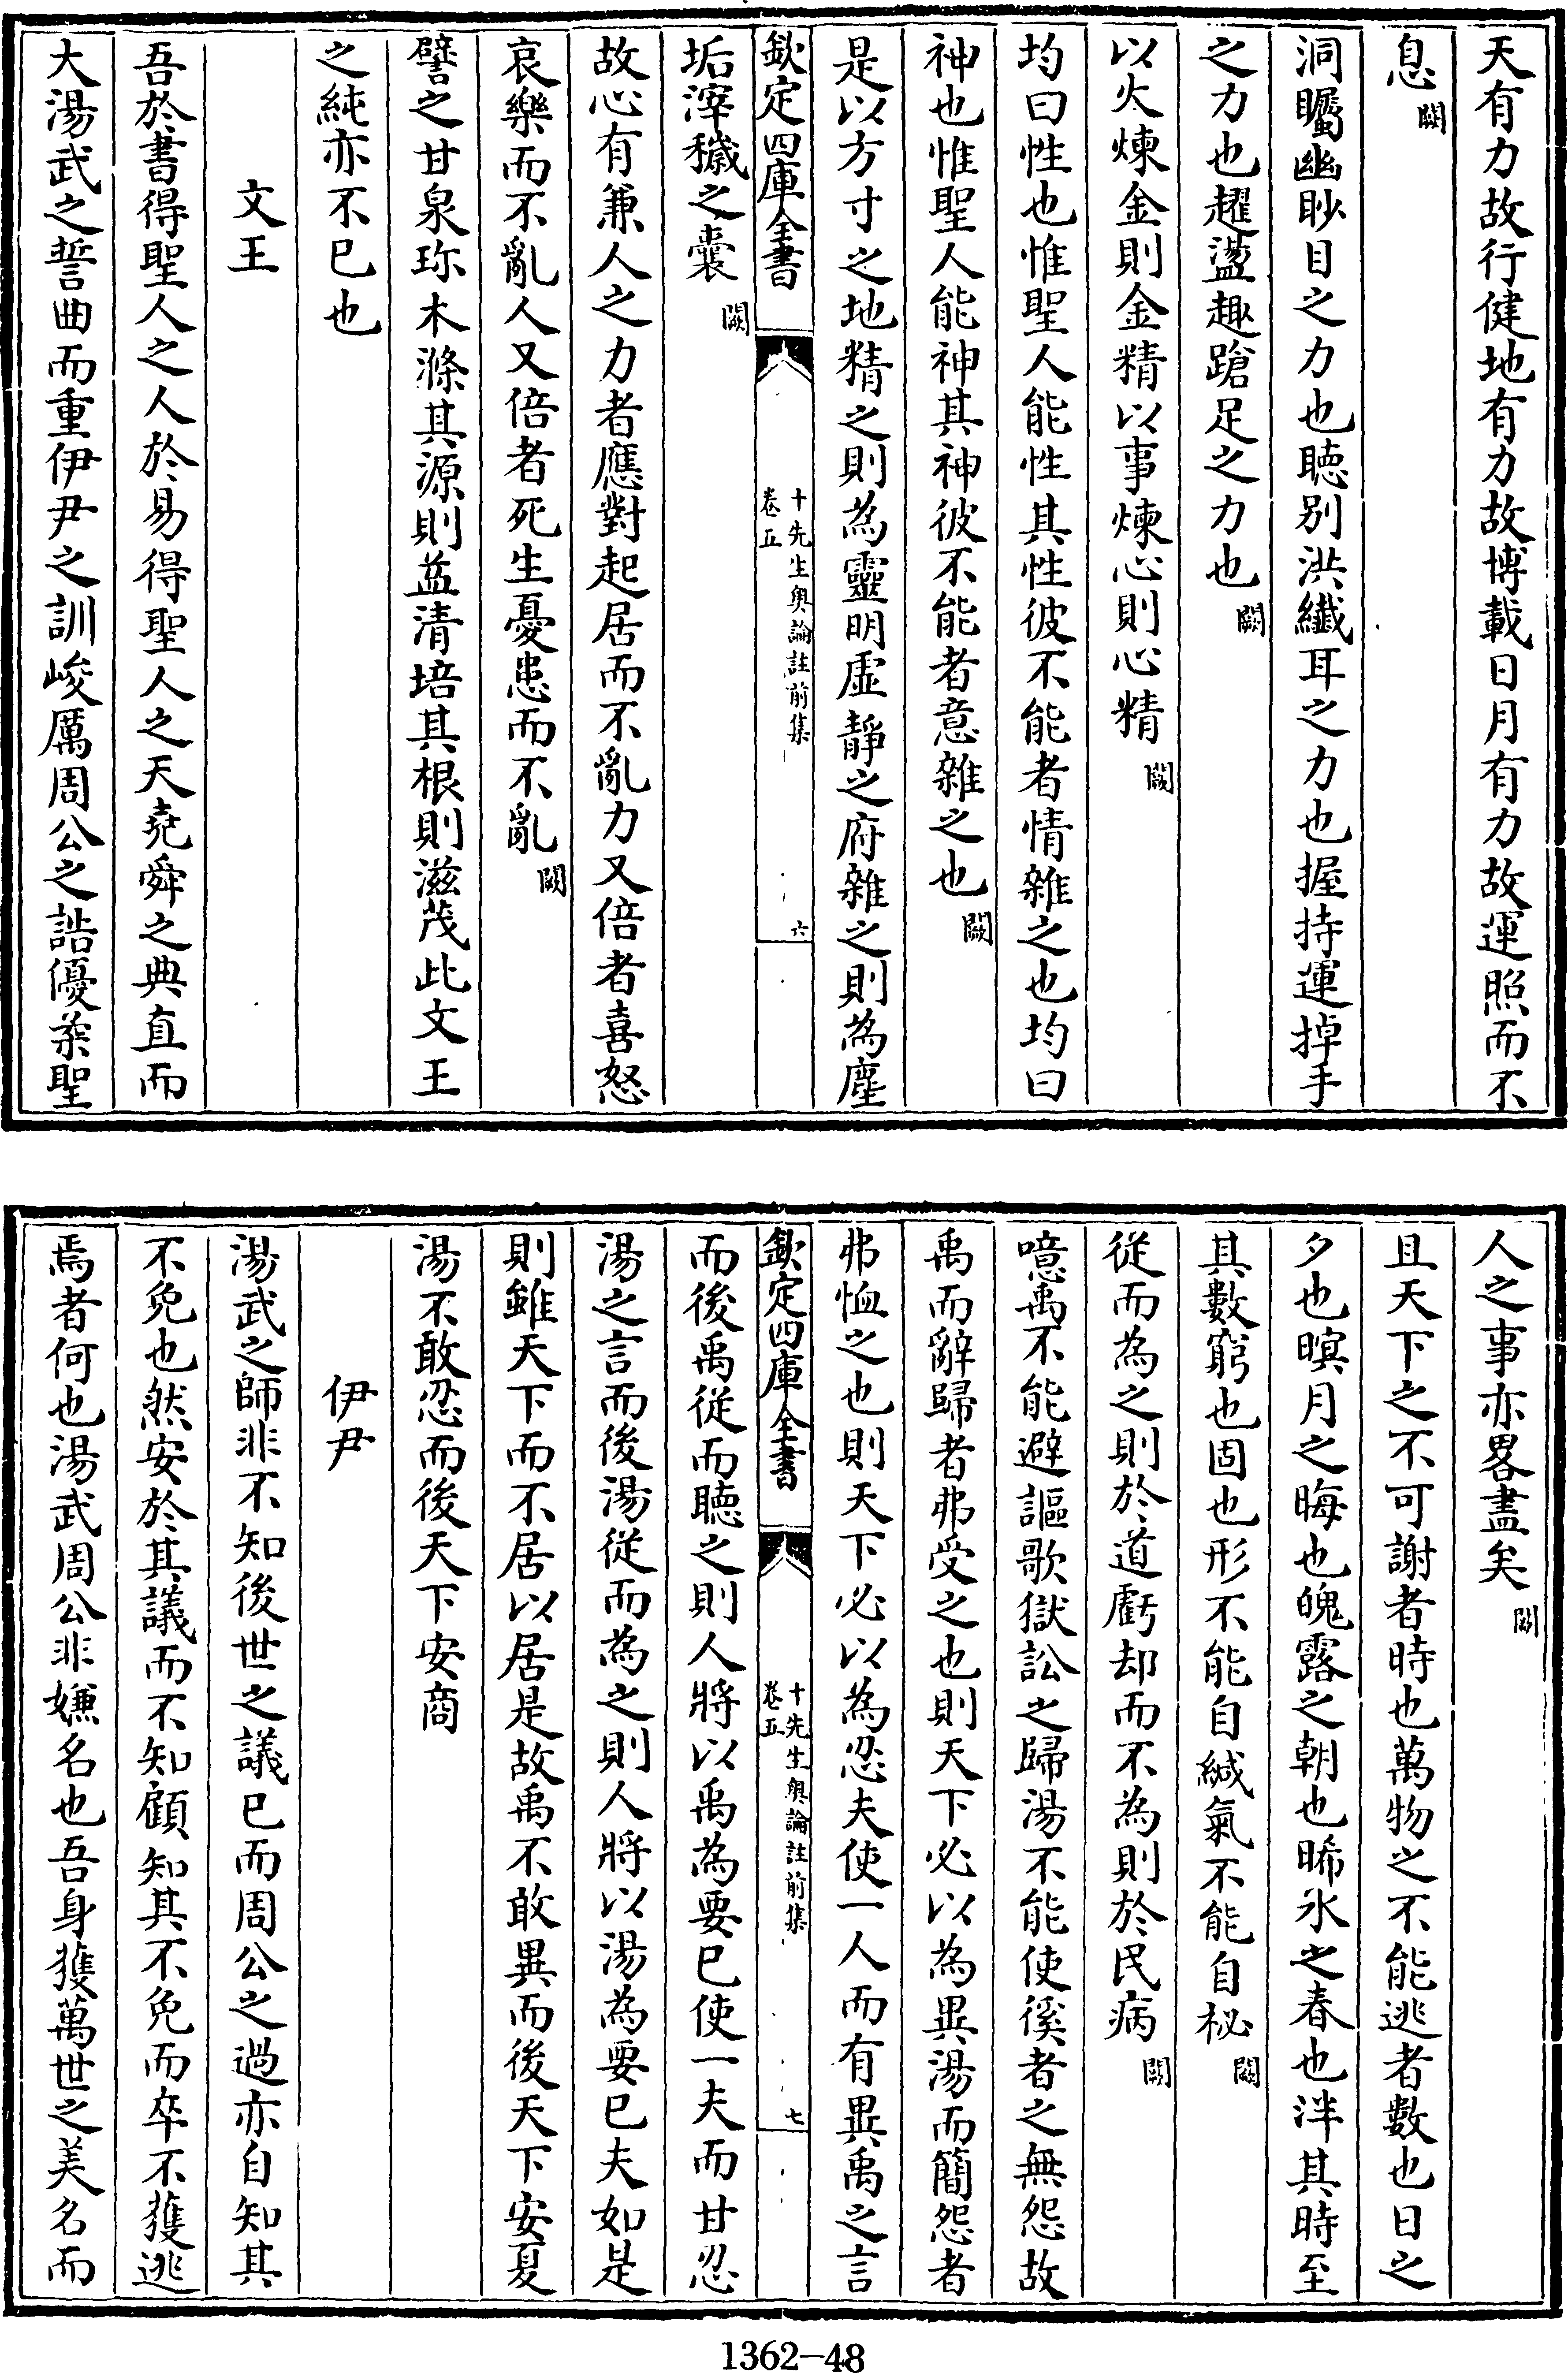 天有力故行健地有力故博載日月有力故運照而不
息闕
洞矚幽眇目之力也聽别洪纎耳之力也握持運掉手
之力也趯盪趣蹌足之力也闕
以火煉金則金精以事煉心則心精闕
均曰性也惟聖人能性其性彼不能者情雜之也均曰
神也惟聖人能神其神彼不能者意雜之也闕
是以方寸之地精之則為靈明虛静之府雜之則為塵
欽定四庫全書
十先生奥論註前集
卷五
六
垢滓穢之囊闕
故心有兼人之力者應對起居而不亂力又倍者喜怒
哀樂而不亂人又倍者死生憂患而不亂闕
譬之甘泉珍木滌其源則益清培其根則滋茂此文王
之純亦不已也
文王
吾於書得聖人之人於易得聖人之天堯舜之典直而
大湯武之誓曲而重伊尹之訓峻厲周公之誥優柔聖
人之事亦畧盡矣闕
且天下之不可謝者時也萬物之不能逃者數也日之
夕也暝月之晦也魄露之朝也晞氷之春也泮其時至
其數窮也固也形不能自緘氣不能自柲闕
從而為之則於道虧却而不為則於民病闕
噫禹不能避謳歌獄訟之歸湯不能使徯者之無怨故
禹而辭歸者弗受之也則天下必以為異湯而簡怨者
弗恤之也則天下必以為忍夫使一人而有異禹之言
欽定四庫全書
十先生奥論註前集
卷五
七
而後禹從而聽之則人將以禹為要已使一夫而甘忍
湯之言而後湯從而為之則人將以湯為要已夫如是
則雖天下而不居以居是故禹不敢異而後天下安夏
湯不敢忍而後天下安商
伊尹
湯武之師非不知後世之議已而周公之過亦自知其
不免也然安於其議而不知顧知其不免而卒不獲逃
焉者何也湯武周公非嫌名也吾身獲萬世之美名而
1362-48